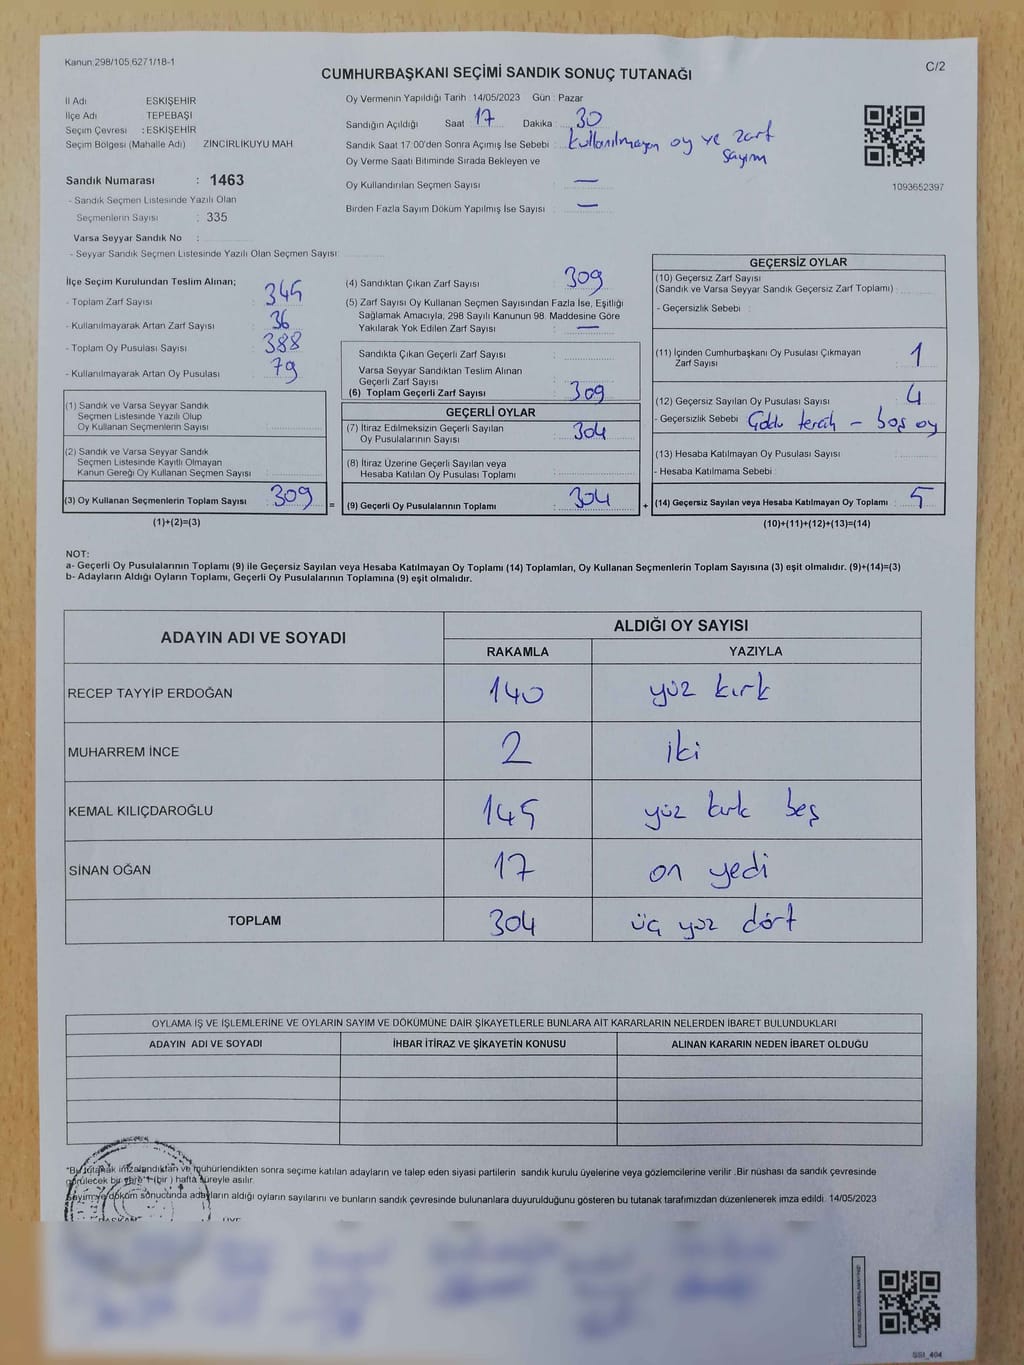 Kanun:298/105,6271/18-1
C/2
CUMHURBAŞKANI SEÇİMİ SANDIK SONUÇ TUTANAĞI
İl Adı ESKİŞEHİR
İlçe Adı TEPEBAŞI
Seçim Çevresi : ESKİŞEHİR
Seçim Bölgesi (Mahalle Adı) ZİNCİRLİKUYU MAH
Sandık Numarası : 1463
- Sandık Seçmen Listesinde Yazılı Olan
Seçmenlerin Sayısı : 335
Varsa Seyyar Sandık No :
- Seyyar Sandık Seçmen Listesinde Yazılı Olan Seçmen Sayısı:
Oy Vermenin Yapıldığı Tarih : 14/05/2023 Gün : Pazar
Sandığın Açıldığı Saat 17 Dakika : 30
Sandık Saat 17:00'den Sonra Açımış İse Sebebi : kullanılmayan oy ve zarf
sayım
Oy Verme Saati Bitiminde Sırada Bekleyen ve
Oy Kullandırılan Seçmen Sayısı : —
Birden Fazla Sayım Döküm Yapılmış İse Sayısı : —
1093652397
İlçe Seçim Kurulundan Teslim Alınan;
- Toplam Zarf Sayısı : 345
- Kullanılmayarak Artan Zarf Sayısı : 36
- Toplam Oy Pusulası Sayısı : 388
- Kullanılmayarak Artan Oy Pusulası : 79
(1) Sandık ve Varsa Seyyar Sandık
Seçmen Listesinde Yazılı Olup
Oy Kullanan Seçmenlerin Sayısı
(2) Sandık ve Varsa Seyyar Sandık
Seçmen Listesinde Kayıtlı Olmayan
Kanun Gereği Oy Kullanan Seçmen Sayısı
(3) Oy Kullanan Seçmenlerin Toplam Sayısı : 309
(1)+(2)=(3)
=
(4) Sandıktan Çıkan Zarf Sayısı : 309
(5) Zarf Sayısı Oy Kullanan Seçmen Sayısından Fazla İse, Eşitliği
Sağlamak Amacıyla, 298 Sayılı Kanunun 98. Maddesine Göre
Yakılarak Yok Edilen Zarf Sayısı : —
Sandıkta Çıkan Geçerli Zarf Sayısı :
Varsa Seyyar Sandıktan Teslim Alınan
Geçerli Zarf Sayısı
(6) Toplam Geçerli Zarf Sayısı : 309
GEÇERLİ OYLAR
(7) İtiraz Edilmeksizin Geçerli Sayılan
Oy Pusulalarının Sayısı : 304
(8) İtiraz Üzerine Geçerli Sayılan veya
Hesaba Katılan Oy Pusulası Toplamı
(9) Geçerli Oy Pusulalarının Toplamı : 304
+
GEÇERSİZ OYLAR
(10) Geçersiz Zarf Sayısı
(Sandık ve Varsa Seyyar Sandık Geçersiz Zarf Toplamı) :
- Geçersizlik Sebebi :
(11) İçinden Cumhurbaşkanı Oy Pusulası Çıkmayan
Zarf Sayısı 1
(12) Geçersiz Sayılan Oy Pusulası Sayısı 4
- Geçersizlik Sebebi tercih - boş oy
(13) Hesaba Katılmayan Oy Pusulası Sayısı
- Hesaba Katılmama Sebebi :
(14) Geçersiz Sayılan veya Hesaba Katılmayan Oy Toplamı : 5
(10)+(11)+(12)+(13)=(14)
NOT:
a- Geçerli Oy Pusulalarının Toplamı (9) ile Geçersiz Sayılan veya Hesaba Katılmayan Oy Toplamı (14) Toplamları, Oy Kullanan Seçmenlerin Toplam Sayısına (3) eşit olmalıdır. (9)+(14)=(3)
b- Adayların Aldığı Oyların Toplamı, Geçerli Oy Pusulalarının Toplamına (9) eşit olmalıdır.
ADAYIN ADI VE SOYADI ALDIĞI OY SAYISI
RAKAMLA YAZIYLA
RECEP TAYYİP ERDOĞAN 140 yüz kırk
MUHARREM İNCE 2 iki
KEMAL KILIÇDAROĞLU 145 yüz kırk beş
SİNAN OĞAN 17 on yedi
TOPLAM 304 üç yüz dört
OYLAMA İŞ VE İŞLEMLERİNE VE OYLARIN SAYIM VE DÖKÜMÜNE DAİR ŞİKAYETLERLE BUNLARA AİT KARARLARIN NELERDEN İBARET BULUNDUKLARI
ADAYIN ADI VE SOYADI İHBAR İTİRAZ VE ŞİKAYETİN KONUSU ALINAN KARARIN NEDEN İBARET OLDUĞU
*Bu tutanak imzalandıktan ve mühürlendikten sonra seçime katılan adayların ve talep eden siyasi partilerin sandık kurulu üyelerine veya gözlemcilerine verilir .Bir nüshası da sandık çevresinde
görülecek bir yere 1 (bir ) hafta süreyle asılır.
Sayım ve döküm sonucunda adayların aldığı oyların sayılarını ve bunların sandık çevresinde bulunanlara duyurulduğunu gösteren bu tutanak tarafımızdan düzenlenerek imza edildi. 14/05/2023
BAŞKAN ÜYE
SSI_404